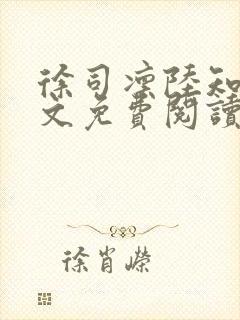 徐司凛陸知
文免費閱讀
徐肖嶸